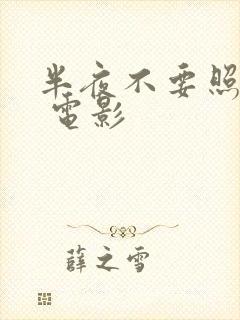 半夜不要照
電影
薛之雪